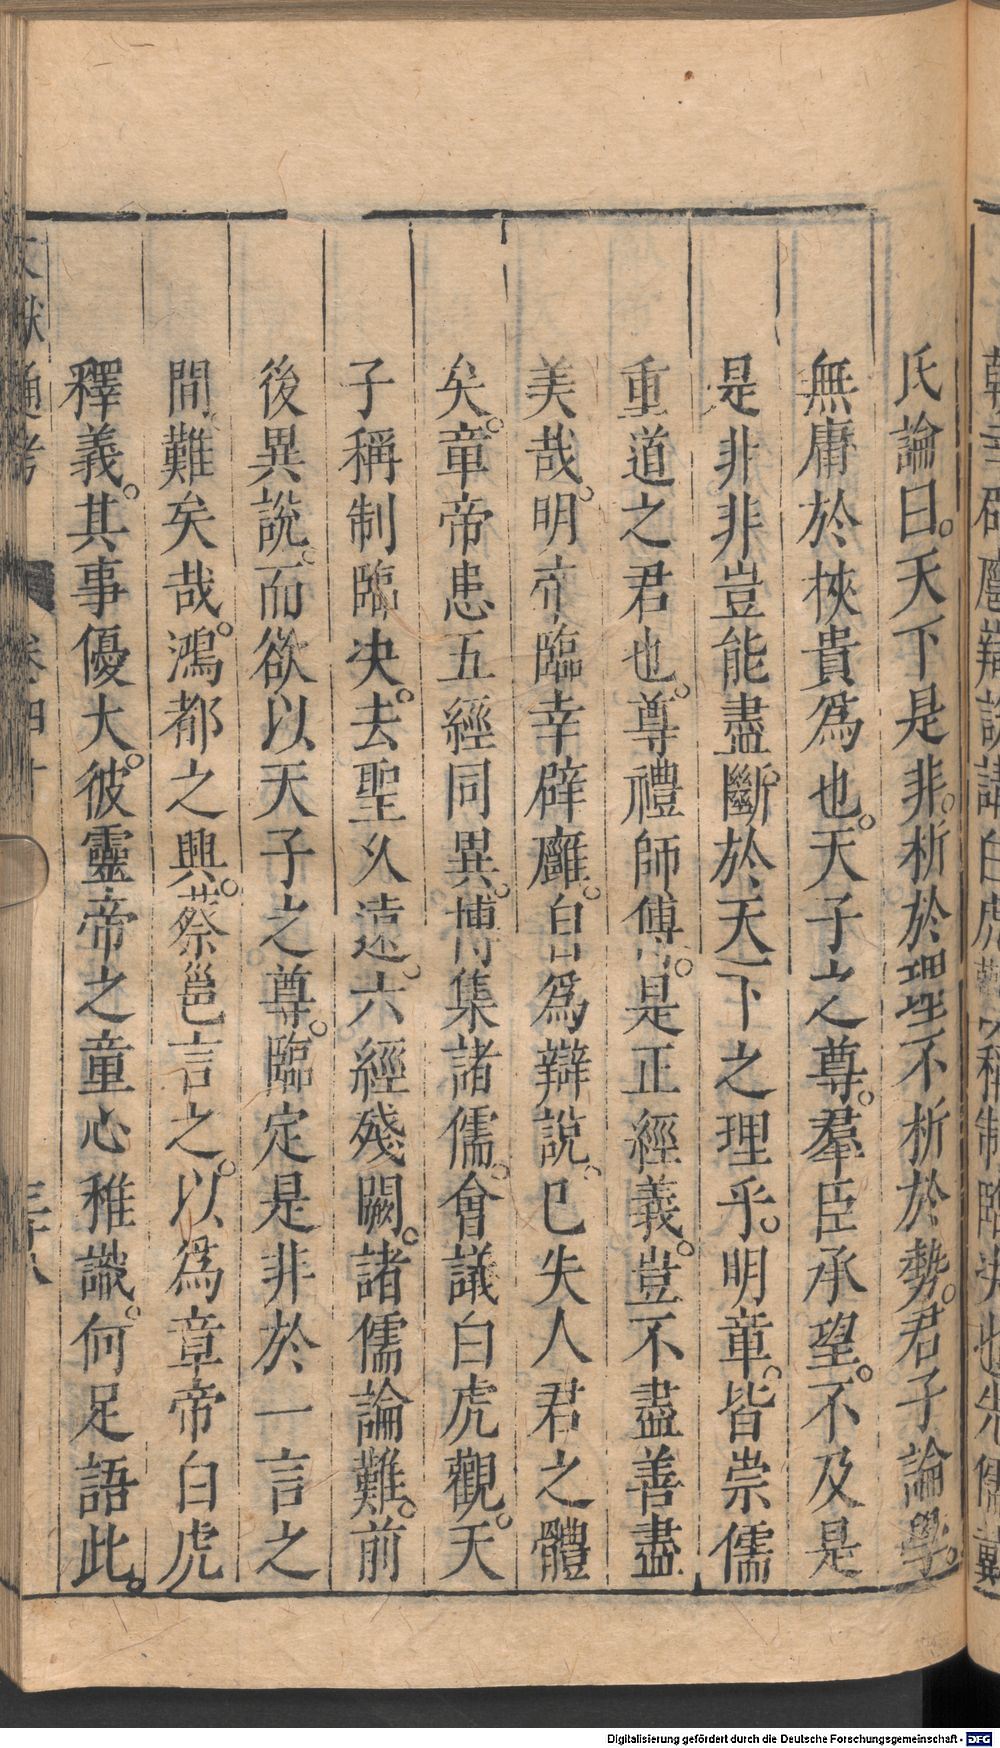 氏論曰。天下是非。析於理不析於勢。君子論學。
無庸於挾貴爲也。天子之尊。羣臣承望。不及是
是非非豈能盡斷於天下之理乎。明章。皆崇儒
重道之君也。尊禮師傅。是正經義。豈不盡善盡
美哉。明帝臨幸辟廱。自爲辯說。已失人君之體
矣。章帝患五經同異。博集諸儒。會議白虎觀。天
子稱制臨决。去聖久遠。六經殘闕。諸儒論難。前
後異說。而欲以天子之尊。臨定是非於一言之
間。難矣哉。鴻都之興。蔡邕言之。以爲章帝白虎
釋義。其事優大。彼靈帝之童心稚識。何足語此。
文獻通考 卷四十 三十八
Digitalisierung gefördert durch die Deutsche Forschungsgemeinschaft - DFG